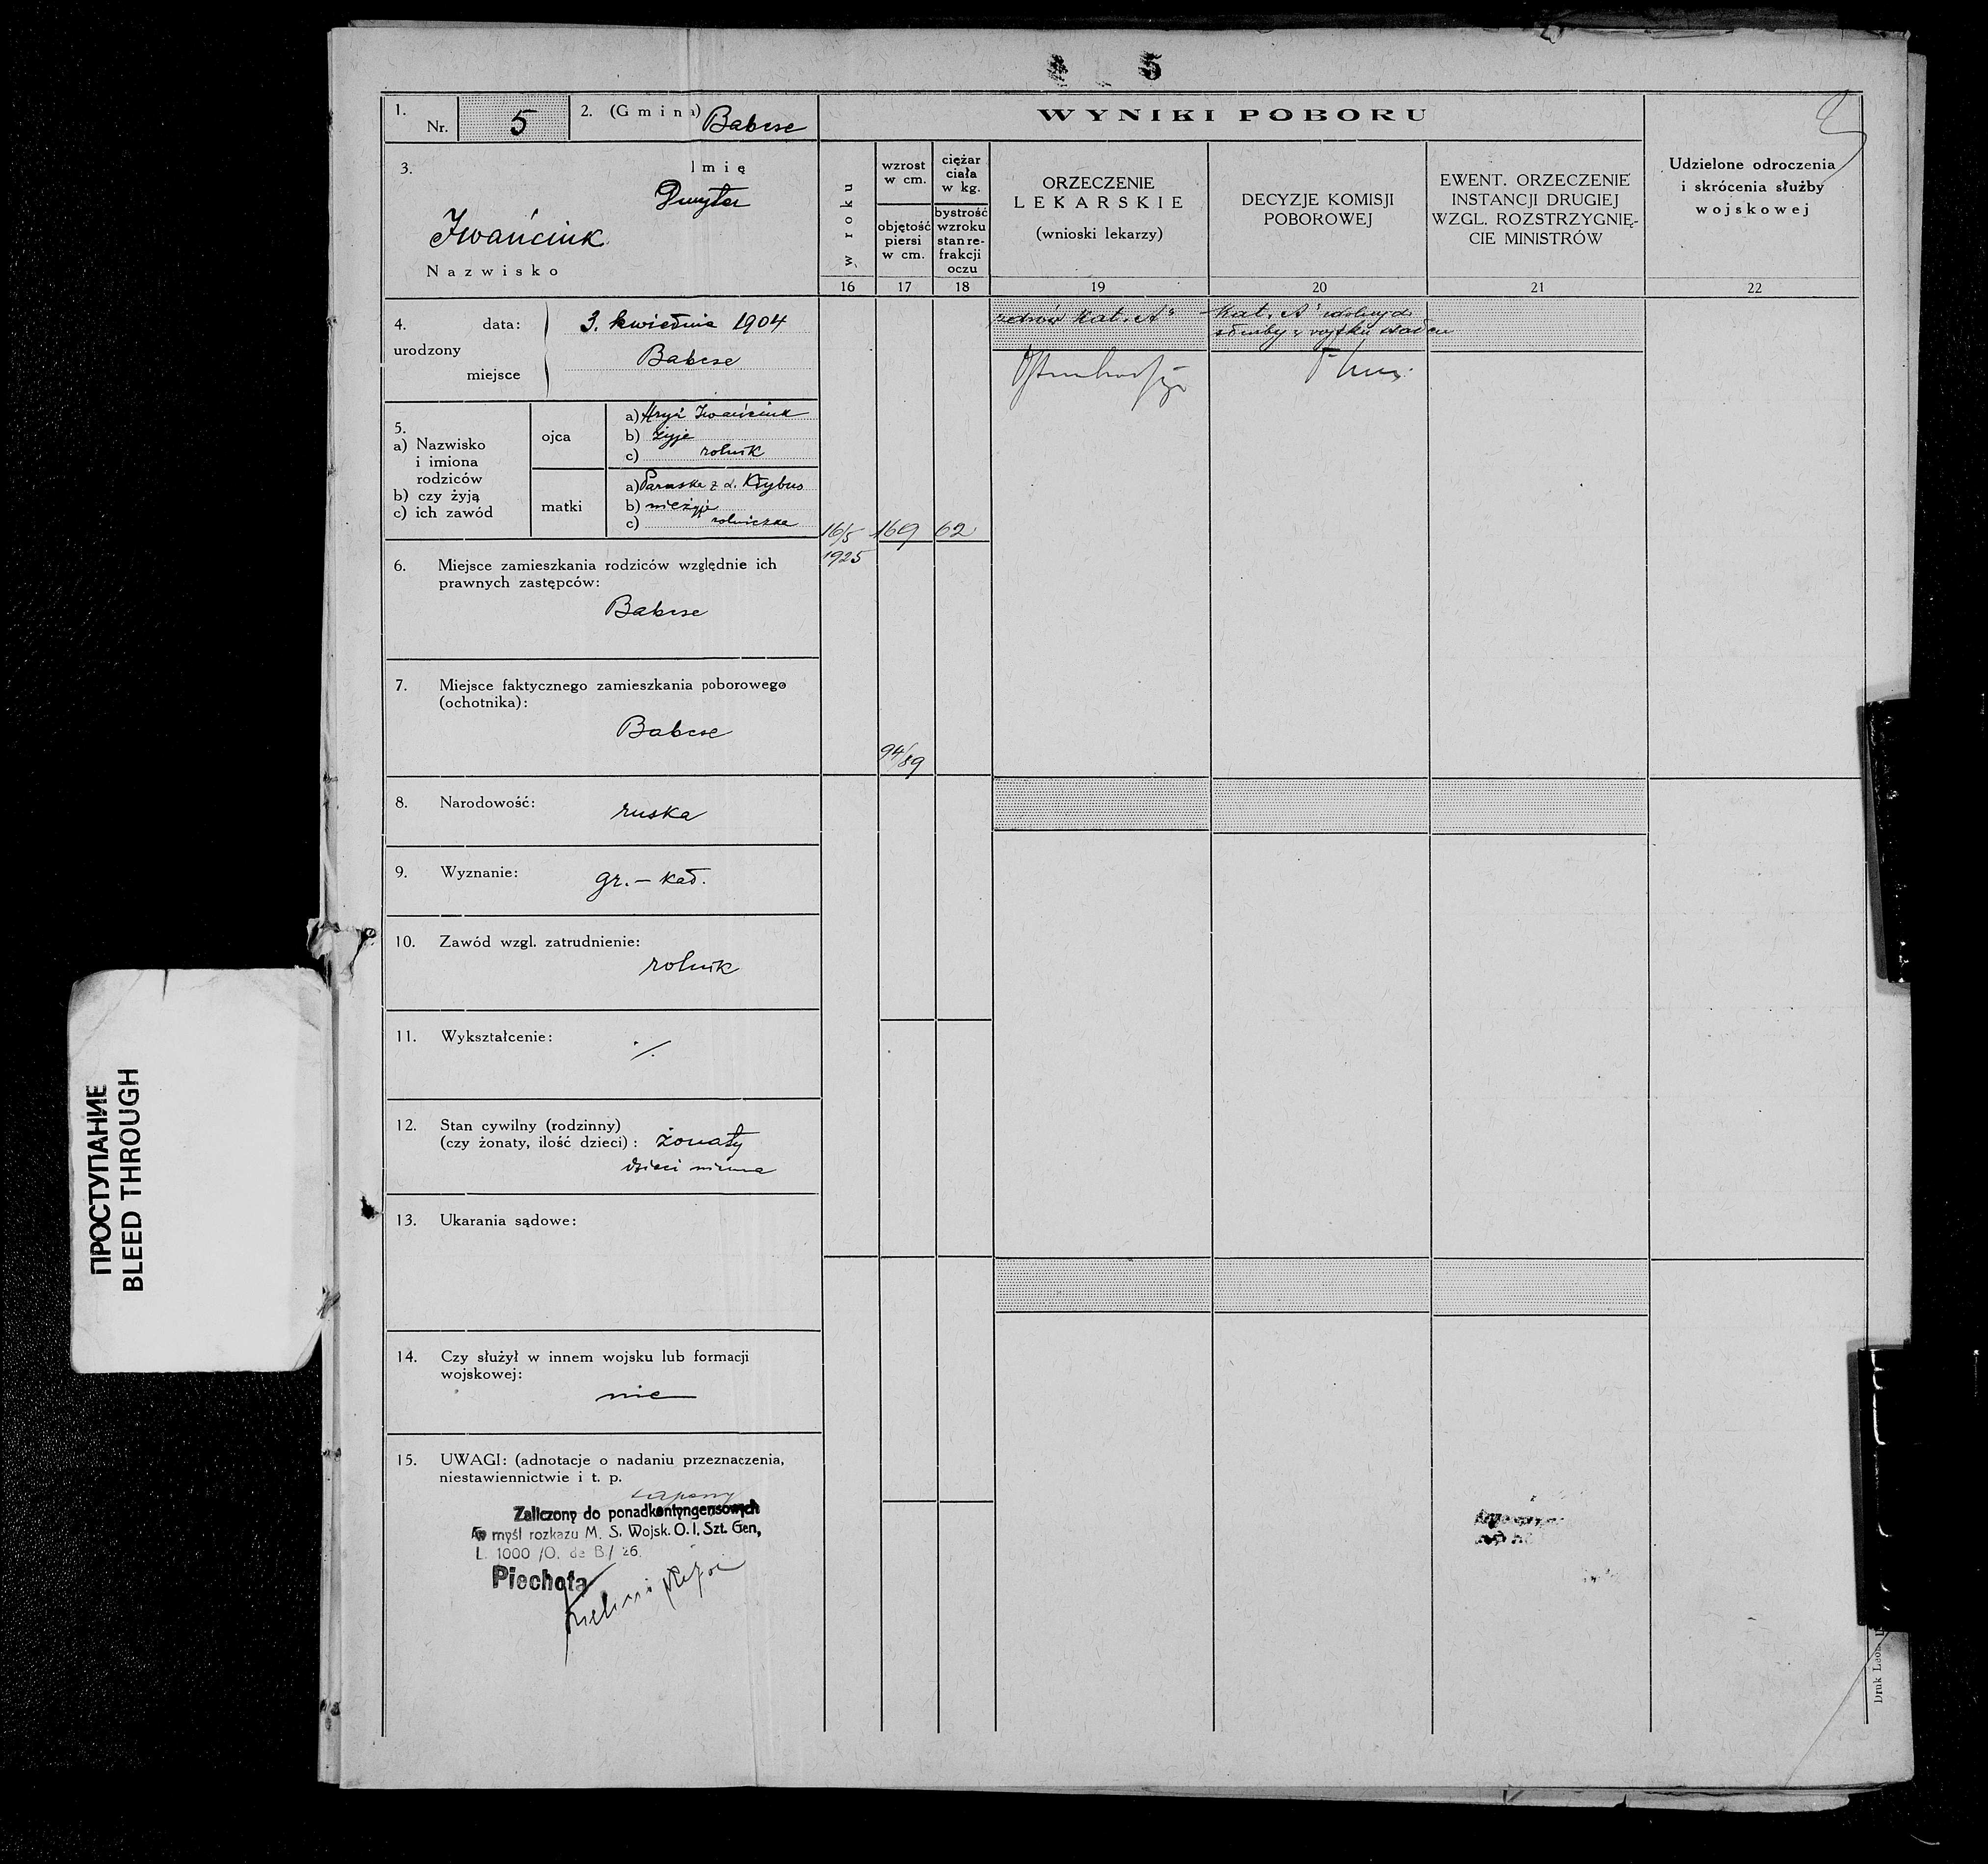 5
1. Nr. 5 2. (Gmina) Babcse
WYNIKI POBORU
3. Imię
Dmyter
Iwańciuk
Nazwisko
w roku
wzrost w cm.
objętość piersi w cm.
ciężar ciała w kg.
bystrość wzroku stan refrakcji oczu
ORZECZENIE
LEKARSKIE
(wnioski lekarzy)
DECYZJE KOMISJI
POBOROWEJ
EWENT. ORZECZENIE
INSTANCJI DRUGIEJ
WZGL. ROZSTRZYGNIĘ-
CIE MINISTRÓW
Udzielone odroczenia
i skrócenia służby
wojskowej
16 17 18 19 20 21 22
4. urodzony
data: 3. kwietnia 1904
miejsce Babcse
Kat. „A"
Kat. „A"
służby w wojsku
5.
a) Nazwisko
i imiona
rodziców
b) czy żyją
c) ich zawód
ojca
a) Hryń Iwańciuk
b) żyje
c) rolnik
matki
a) Paraska z d.
b) nieżyje
c) rolniczka
16/5 169 62
1925
6. Miejsce zamieszkania rodziców względnie ich
prawnych zastępców:
Babcse
7. Miejsce faktycznego zamieszkania poborowego
(ochotnika):
Babcse
94/89
8. Narodowość:
ruska
9. Wyznanie:
gr.-kat.
10. Zawód wzgl. zatrudnienie:
rolnik
11. Wykształcenie:
./.
12. Stan cywilny (rodzinny)
(czy żonaty, ilość dzieci): żonaty
dzieci niema
13. Ukarania sądowe:
14. Czy służył w innem wojsku lub formacji
wojskowej:
nie
15. UWAGI: (adnotacje o nadaniu przeznaczenia,
niestawiennictwie i t. p.
Zaliczony do ponadkontyngensowych
w myśl rozkazu M. S. Wojsk. O. I. Szt. Gen,
L. 1000 /O. de B/ 26.
Piechota
Druk
ПРОСТУПАНИЕ
BLEED THROUGH